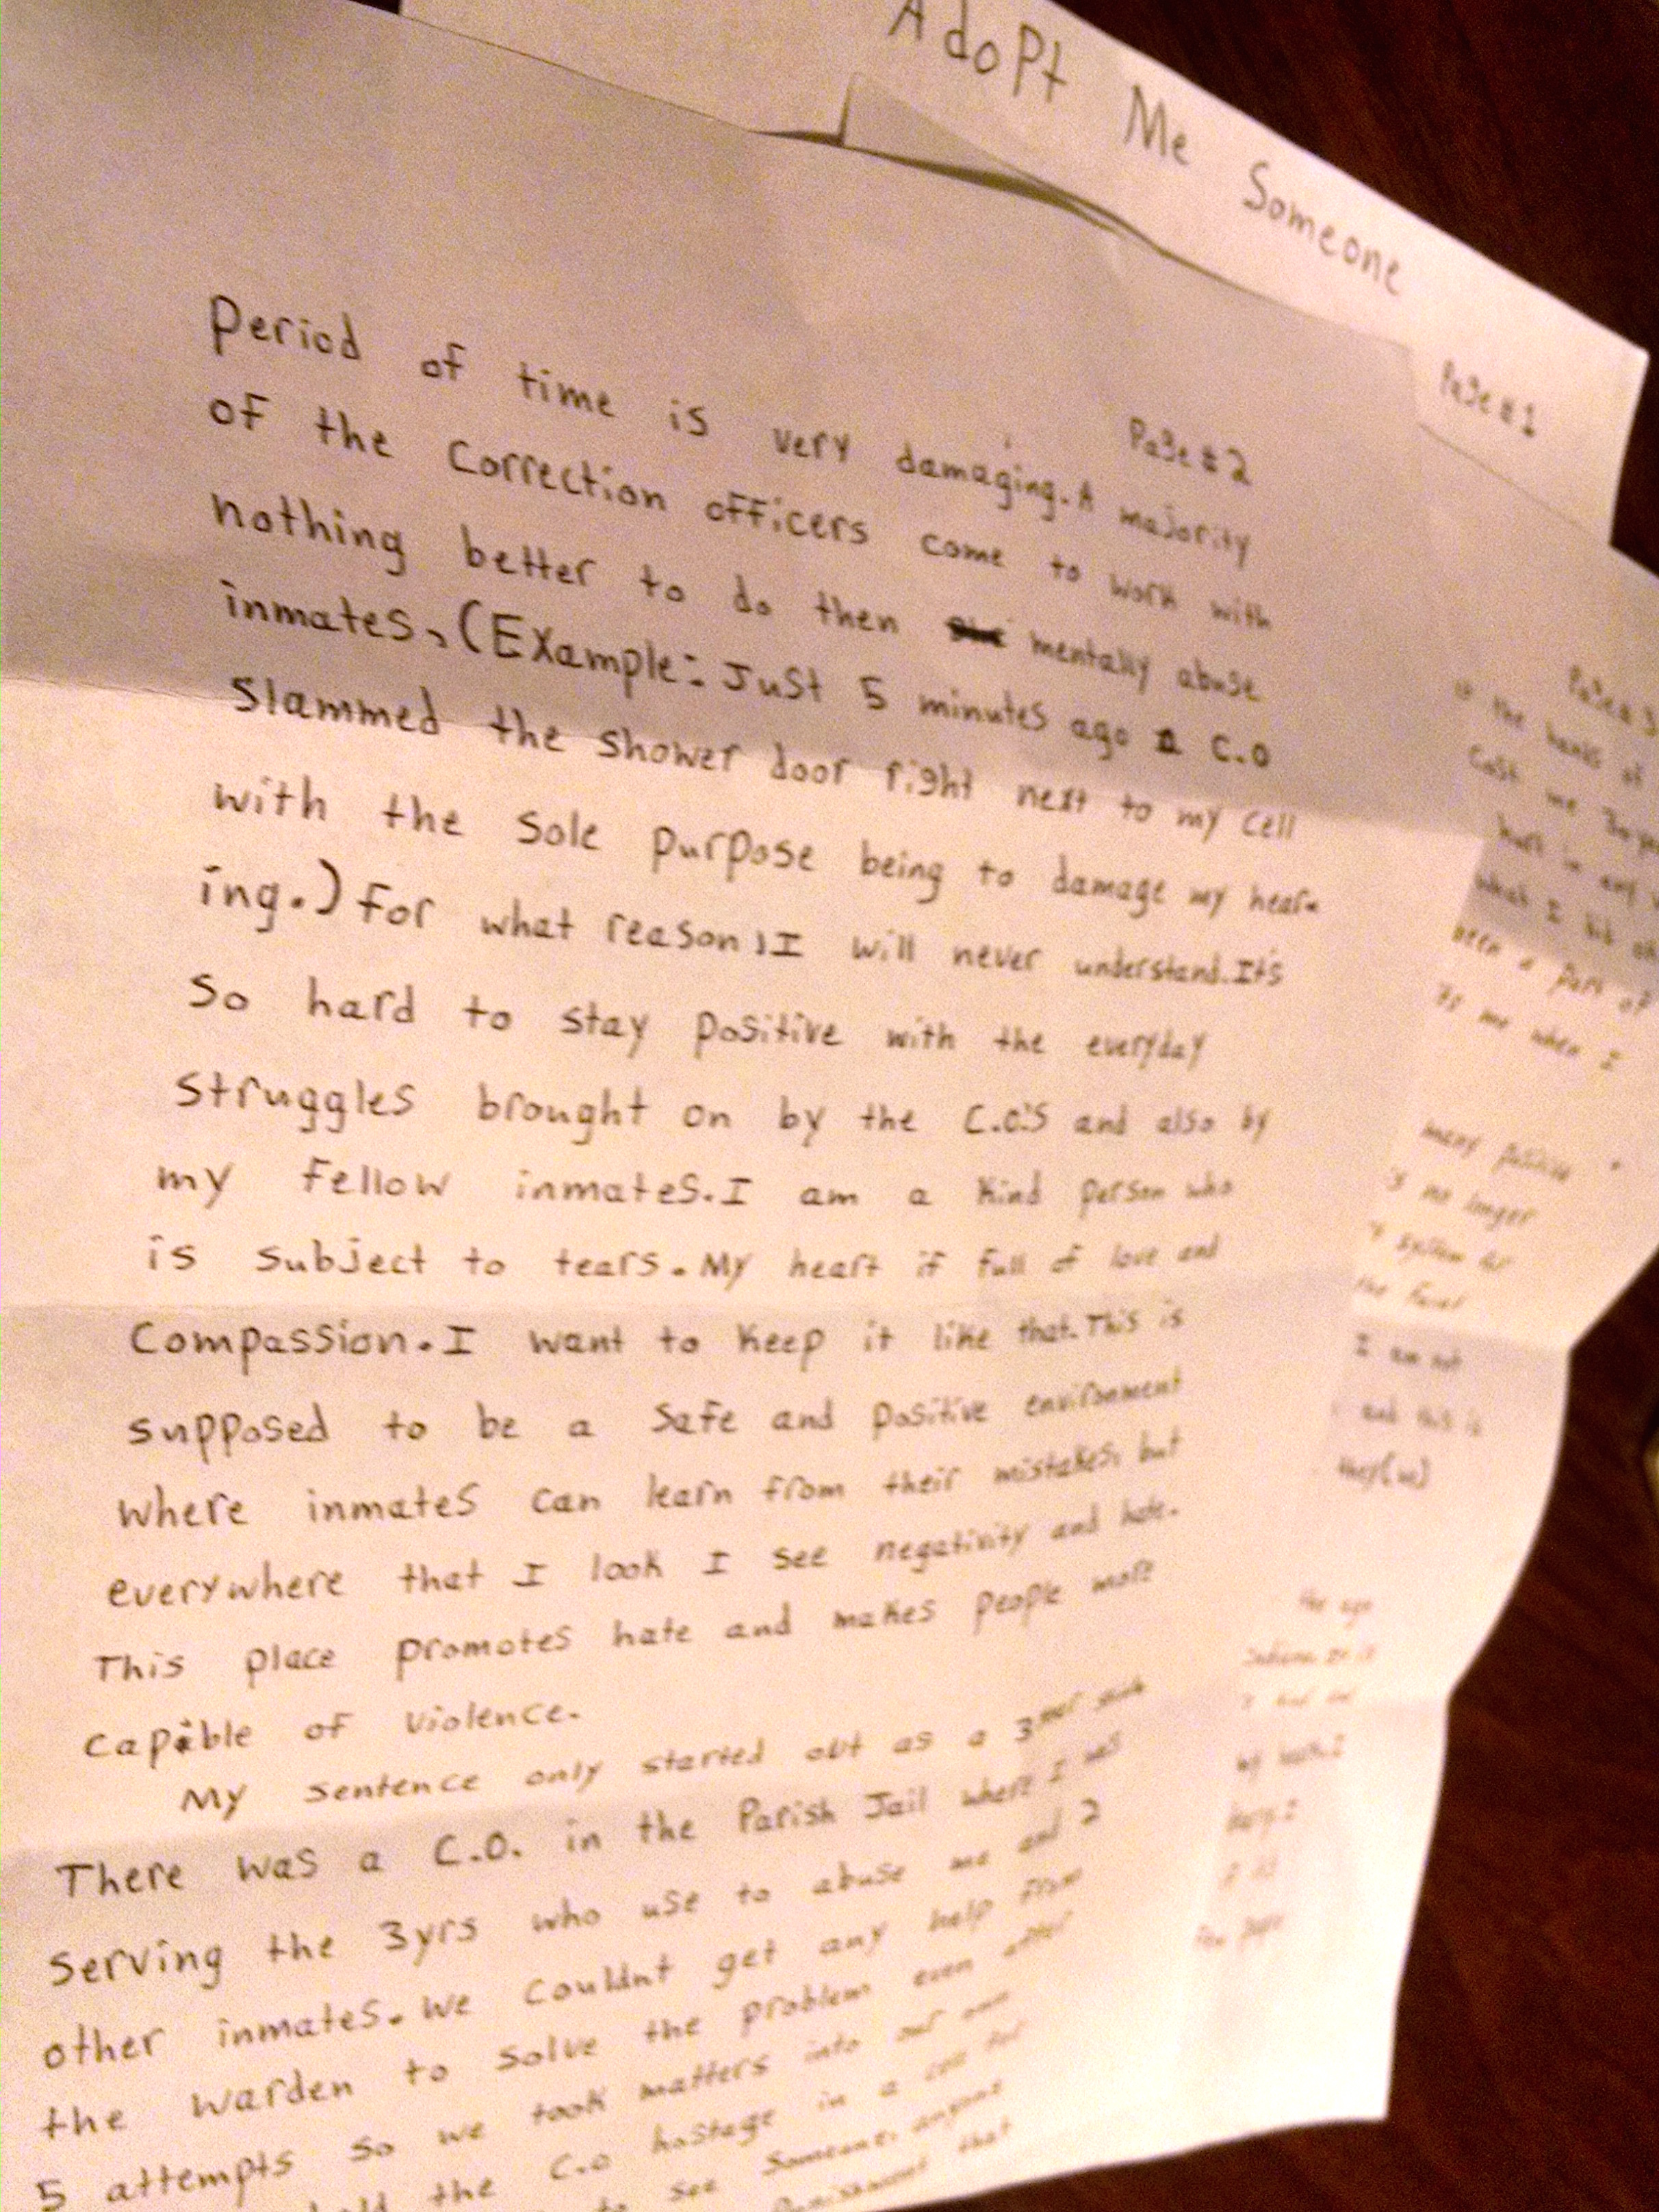 Adopt Me Someone
Page # 1
Page # 2
Period of time is very damaging. A majority
of the Correction officers come to work with
nothing better to do then mentally abuse
inmates, (Example: Just 5 minutes ago a C.O
slammed the shower door right next to my cell
with the sole purpose being to damage my hear-
ing.) For what reason, I will never understand. It's
So hard to stay positive with the everyday
struggles brought on by the C.O.'S and also by
my fellow inmates. I am a kind person who
is subject to tears. My heart if full of love and
Compassion. I want to keep it like that. This is
supposed to be a safe and positive environment
where inmates can learn from their mistakes, but
everywhere that I look I see negativity and hate.
This place promotes hate and makes people more
capible of violence.
My sentence only started out as a 3
There was a C.O. in the Parish Jail where I was
serving the 3yrs who use to abuse me and 2
other inmates. We couldnt get any help from
the warden to solve the problem even after
5 attempts so we took matters into our own
the C.O hostage in a cell for
to see someone, anyone
Punishment that
Page # 3
the hands of
Cost me 30
hurt in any
what I did
been a part of
to me when I
many positive
is no longer
system for
the
I am not
and this is
they (we)
the age
Indiana
my health. I